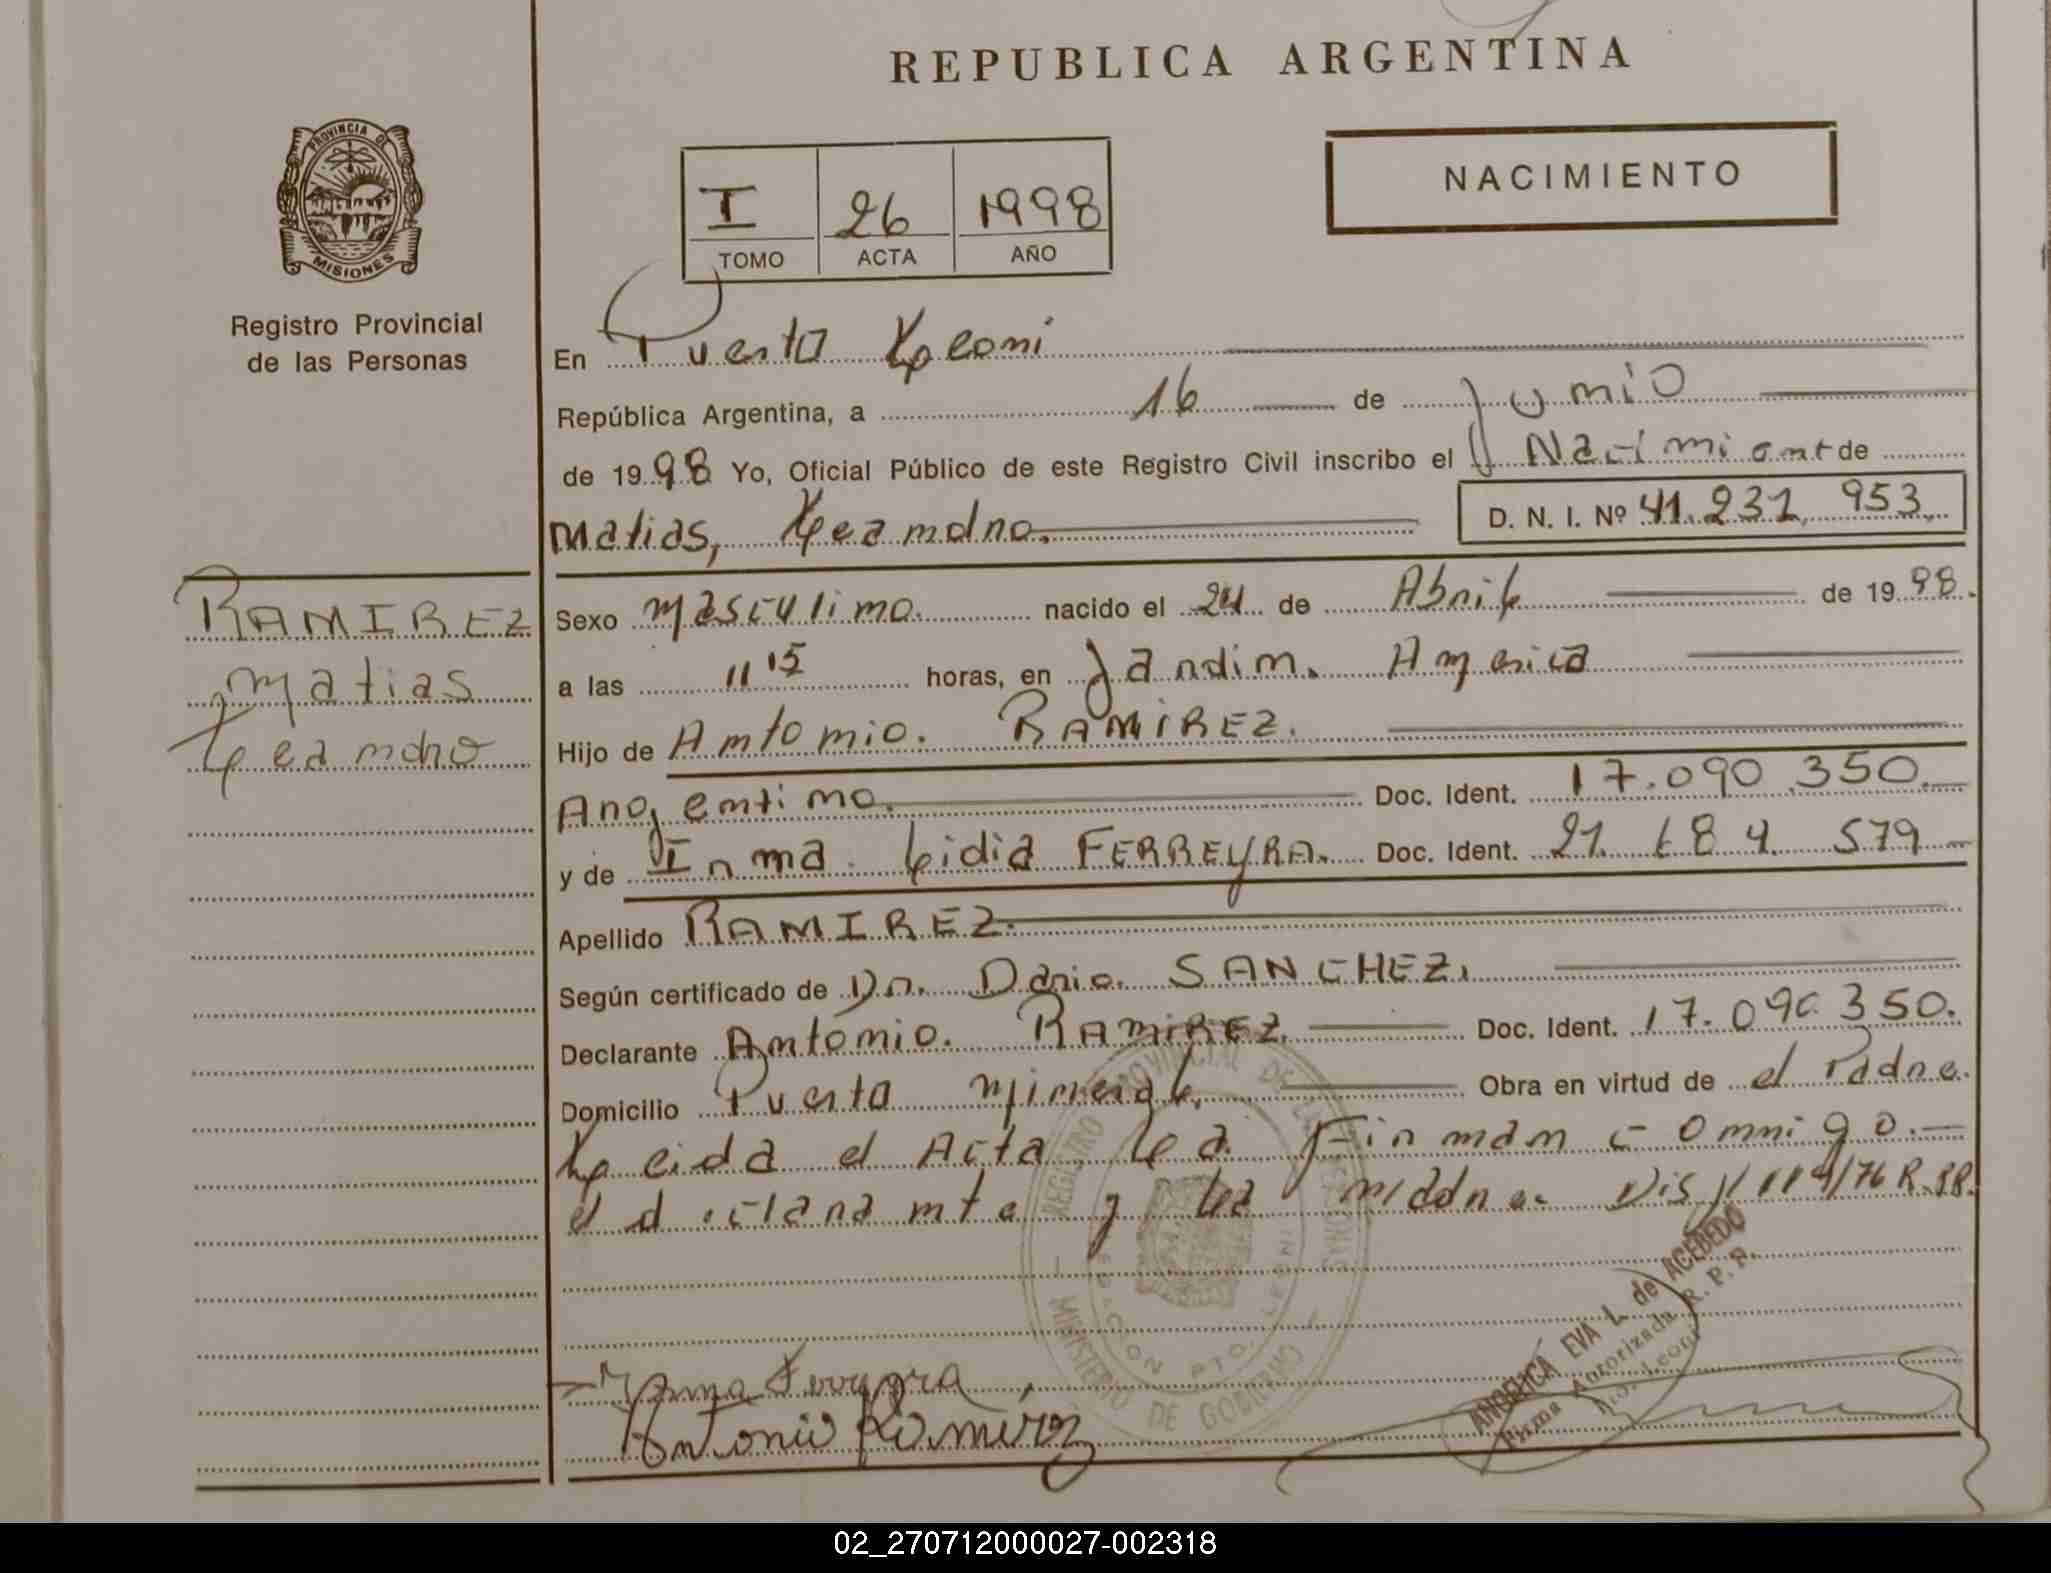 REPUBLICA ARGENTINA
NACIMIENTO
PROVINCIA DE MISIONES
I 26 1998
TOMO ACTA AÑO
Registro Provincial
de las Personas
En Puerto Leoni
República Argentina, a 16 de Junio
de 1998 Yo, Oficial Público de este Registro Civil inscribo el Nacimient de
Matias, Leandro. D. N. I. Nº 41.231.953
RAMIREZ
Matias
Leandro
Sexo Masculino. nacido el 24 de Abril de 1998.
a las 11 15 horas, en Jardin. America
Hijo de Antonio. RAMIREZ.
Argentino. Doc. Ident. 17.090.350.
y de Irma. Lidia FERREYRA. Doc. Ident. 21.684.579
Apellido RAMIREZ.
Según certificado de Dr. Dario. SANCHEZ.
Declarante Antonio. RAMIREZ. Doc. Ident. 17.090.350.
Domicilio Puerto Mineral. Obra en virtud de el Padre.
Leida el Acta La Firman conmigo.
el declarante y La madre. Disp 119/76 R.PP.
REGISTRO PROVINCIAL DE LAS PERSONAS
MINISTERIO DE GOBIERNO
ANGELICA EVA L. de ACEBEDO
Firma Autorizada R. P. P.
Pto. Leoni
Irma Ferreyra
Antonio Ramirez
02_270712000027-002318